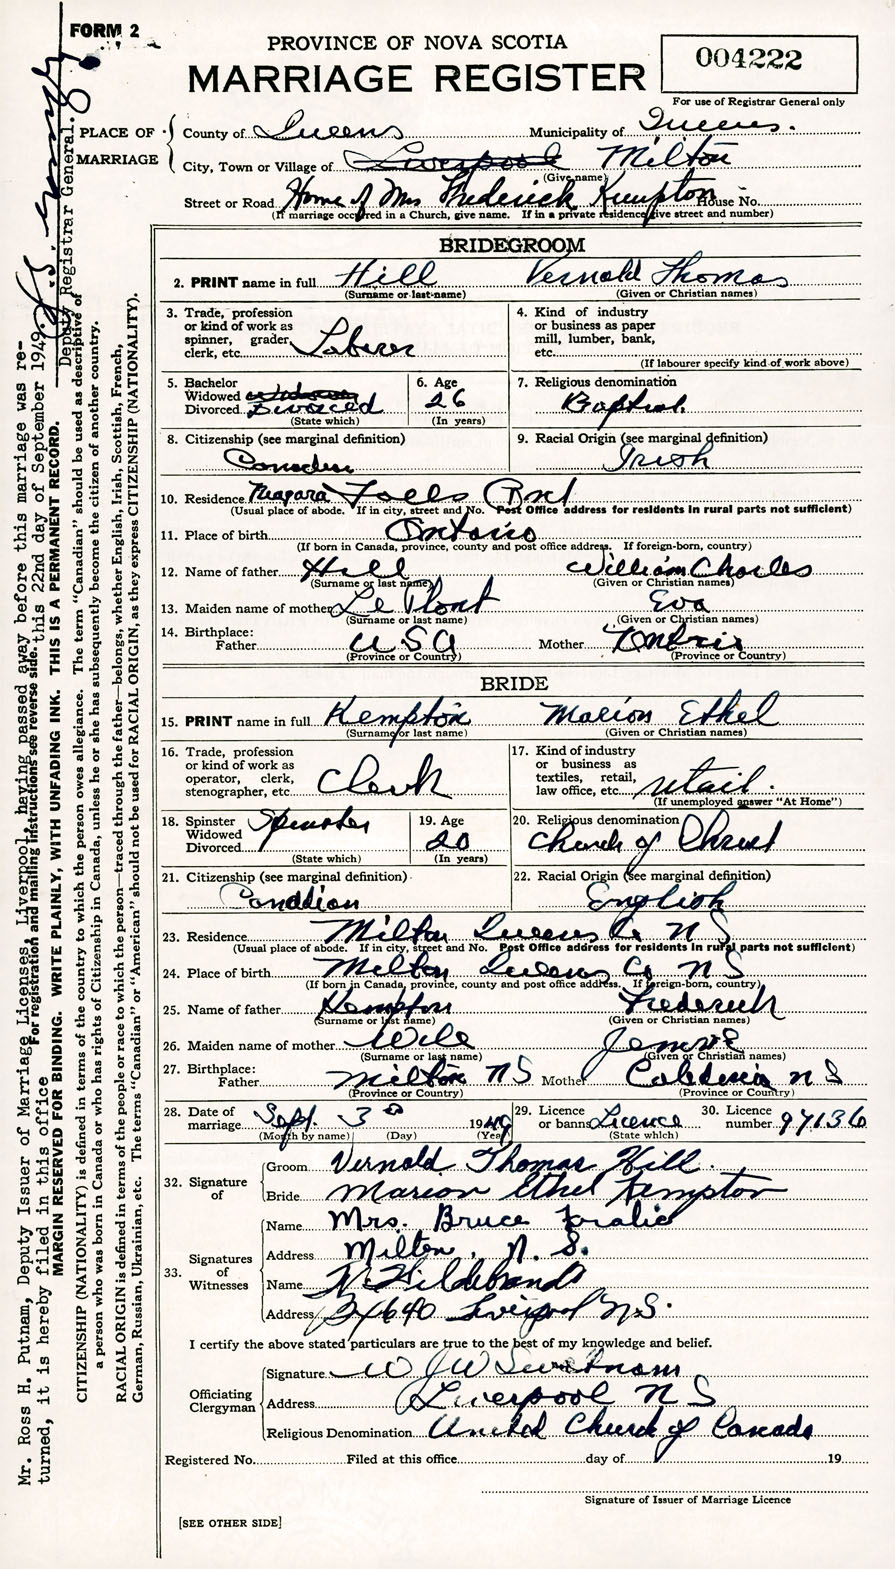 FORM 2
PROVINCE OF NOVA SCOTIA
MARRIAGE REGISTER
004222
For use of Registrar General only
PLACE OF MARRIAGE
County of Queens Municipality of Queens.
City, Town or Village of Liverpool Milton
(Give name)
Street or Road Home of Mrs Frederick Kempton House No.
(If marriage occurred in a Church, give name. If in a private residence give street and number)
BRIDEGROOM
2. PRINT name in full Hill Vernold Thomas
(Surname or last name) (Given or Christian names)
3. Trade, profession or kind of work as spinner, grader, clerk, etc. Laborer
4. Kind of industry or business as paper mill, lumber, bank, etc.
(If labourer specify kind of work above)
5. Bachelor Widowed Divorced Divorced
(State which)
6. Age 26
(In years)
7. Religious denomination Baptist.
8. Citizenship (see marginal definition)
Canadian
9. Racial Origin (see marginal definition)
Irish
10. Residence Niagara Falls Ont
(Usual place of abode. If in city, street and No. Post Office address for residents in rural parts not sufficient)
11. Place of birth Ontario
(If born in Canada, province, county and post office address. If foreign-born, country)
12. Name of father Hill William Charles
(Surname or last name) (Given or Christian names)
13. Maiden name of mother Le Plont Eva
(Surname or last name) (Given or Christian names)
14. Birthplace: Father USA Mother Ontario
(Province or Country) (Province or Country)
BRIDE
15. PRINT name in full Kempton Marion Ethel
(Surname or last name) (Given or Christian names)
16. Trade, profession or kind of work as operator, clerk, stenographer, etc. Clerk
17. Kind of industry or business as textiles, retail, law office, etc. retail.
(If unemployed answer "At Home")
18. Spinster Widowed Divorced Spinster
(State which)
19. Age 20
(In years)
20. Religious denomination
Church of Christ
21. Citizenship (see marginal definition)
Canadian
22. Racial Origin (see marginal definition)
English
23. Residence Milton Queens Co N S
(Usual place of abode. If in city, street and No. Post Office address for residents in rural parts not sufficient)
24. Place of birth Milton Queens Co N S
(If born in Canada, province, county and post office address. If foreign-born, country)
25. Name of father Kempton Frederick
(Surname or last name) (Given or Christian names)
26. Maiden name of mother Wile
(Surname or last name) (Given or Christian names)
27. Birthplace: Father Milton NS Mother Caledonia N S
(Province or Country) (Province or Country)
28. Date of marriage Sept. 3rd 1949
(Month by name) (Day) (Year)
29. Licence or banns Licence
(State which)
30. Licence number 97136
32. Signature of
Groom Vernold Thomas Hill.
Bride Marion Ethel Kempton
33. Signatures of Witnesses
Name Mrs. Bruce
Address Milton, N. S.
Name Hildebrandt
Address Bx 640 Liverpool N.S.
I certify the above stated particulars are true to the best of my knowledge and belief.
Officiating Clergyman
Signature W J W Swetnam
Address Liverpool N S
Religious Denomination United Church of Canada
Registered No. Filed at this office day of 19
Signature of Issuer of Marriage Licence
[SEE OTHER SIDE]
Mr. Ross H. Putnam, Deputy Issuer of Marriage Licenses, Liverpool, having passed away before this marriage was re-
turned, it is hereby filed in this office this 22nd day of September 1949.
Deputy Registrar General.
For registration and mailing instructions see reverse side.
MARGIN RESERVED FOR BINDING. WRITE PLAINLY, WITH UNFADING INK. THIS IS A PERMANENT RECORD.
CITIZENSHIP (NATIONALITY) is defined in terms of the country to which the person owes allegiance. The term "Canadian" should be used as descriptive of
a person who was born in Canada or who has rights of Citizenship in Canada, unless he or she has subsequently become the citizen of another country.
RACIAL ORIGIN is defined in terms of the people or race to which the person—traced through the father—belongs, whether English, Irish, Scottish, French,
German, Russian, Ukrainian, etc. The terms "Canadian" or "American" should not be used for RACIAL ORIGIN, as they express CITIZENSHIP (NATIONALITY).